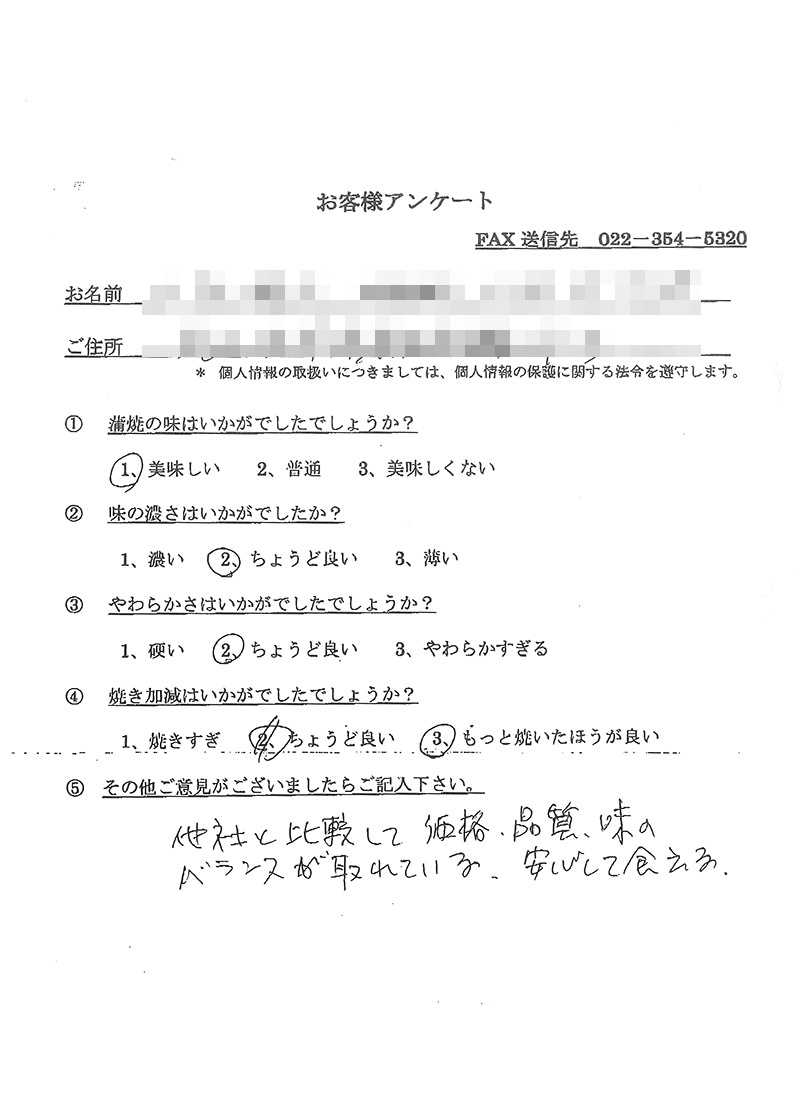 お客様アンケート
FAX 送信先 022-354-5320
お名前
ご住所
* 個人情報の取扱いにつきましては、個人情報の保護に関する法令を遵守します。
① 蒲焼の味はいかがでしたでしょうか?
1、美味しい 2、普通 3、美味しくない
② 味の濃さはいかがでしたか?
1、濃い 2、ちょうど良い 3、薄い
③ やわらかさはいかがでしたでしょうか?
1、硬い 2、ちょうど良い 3、やわらかすぎる
④ 焼き加減はいかがでしたでしょうか?
1、焼きすぎ 2、ちょうど良い 3、もっと焼いたほうが良い
⑤ その他ご意見がございましたらご記入下さい。
他社と比較して価格、品質、味の
バランスが取れている、安心して食える.